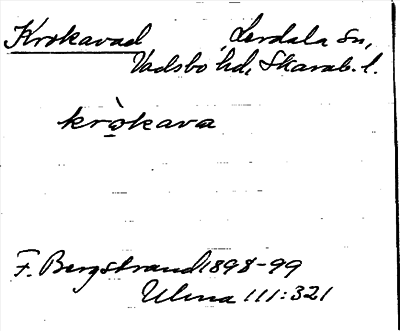 Krokavad Lerdala Sn,
Vadsbo hd, Skarab. l.
kròkava
F. Bergstrand 1898-99
Ulma 111:321